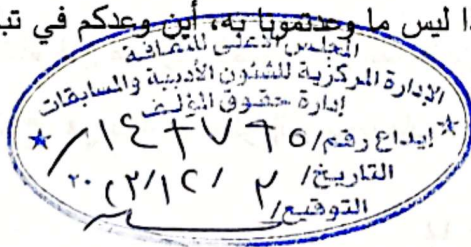 ليس ما وعدتمونا به، أين وعدكم في
المجلس الأعلى للثقافة
الإدارة المركزية للشئون الأدبية والمسابقات
إدارة حقوق المؤلف
إيداع رقم/
التاريخ/ ٢ /١٢/
التوقيع/